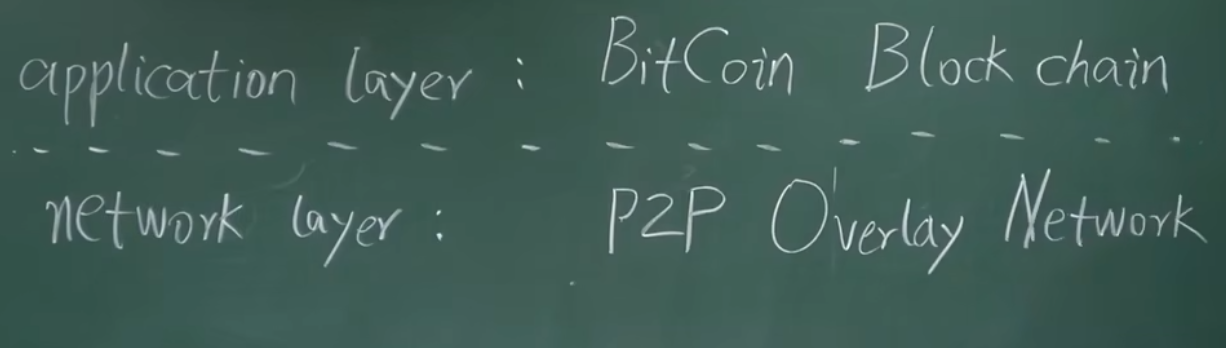 application layer : BitCoin Block chain
network layer : P2P Overlay Network